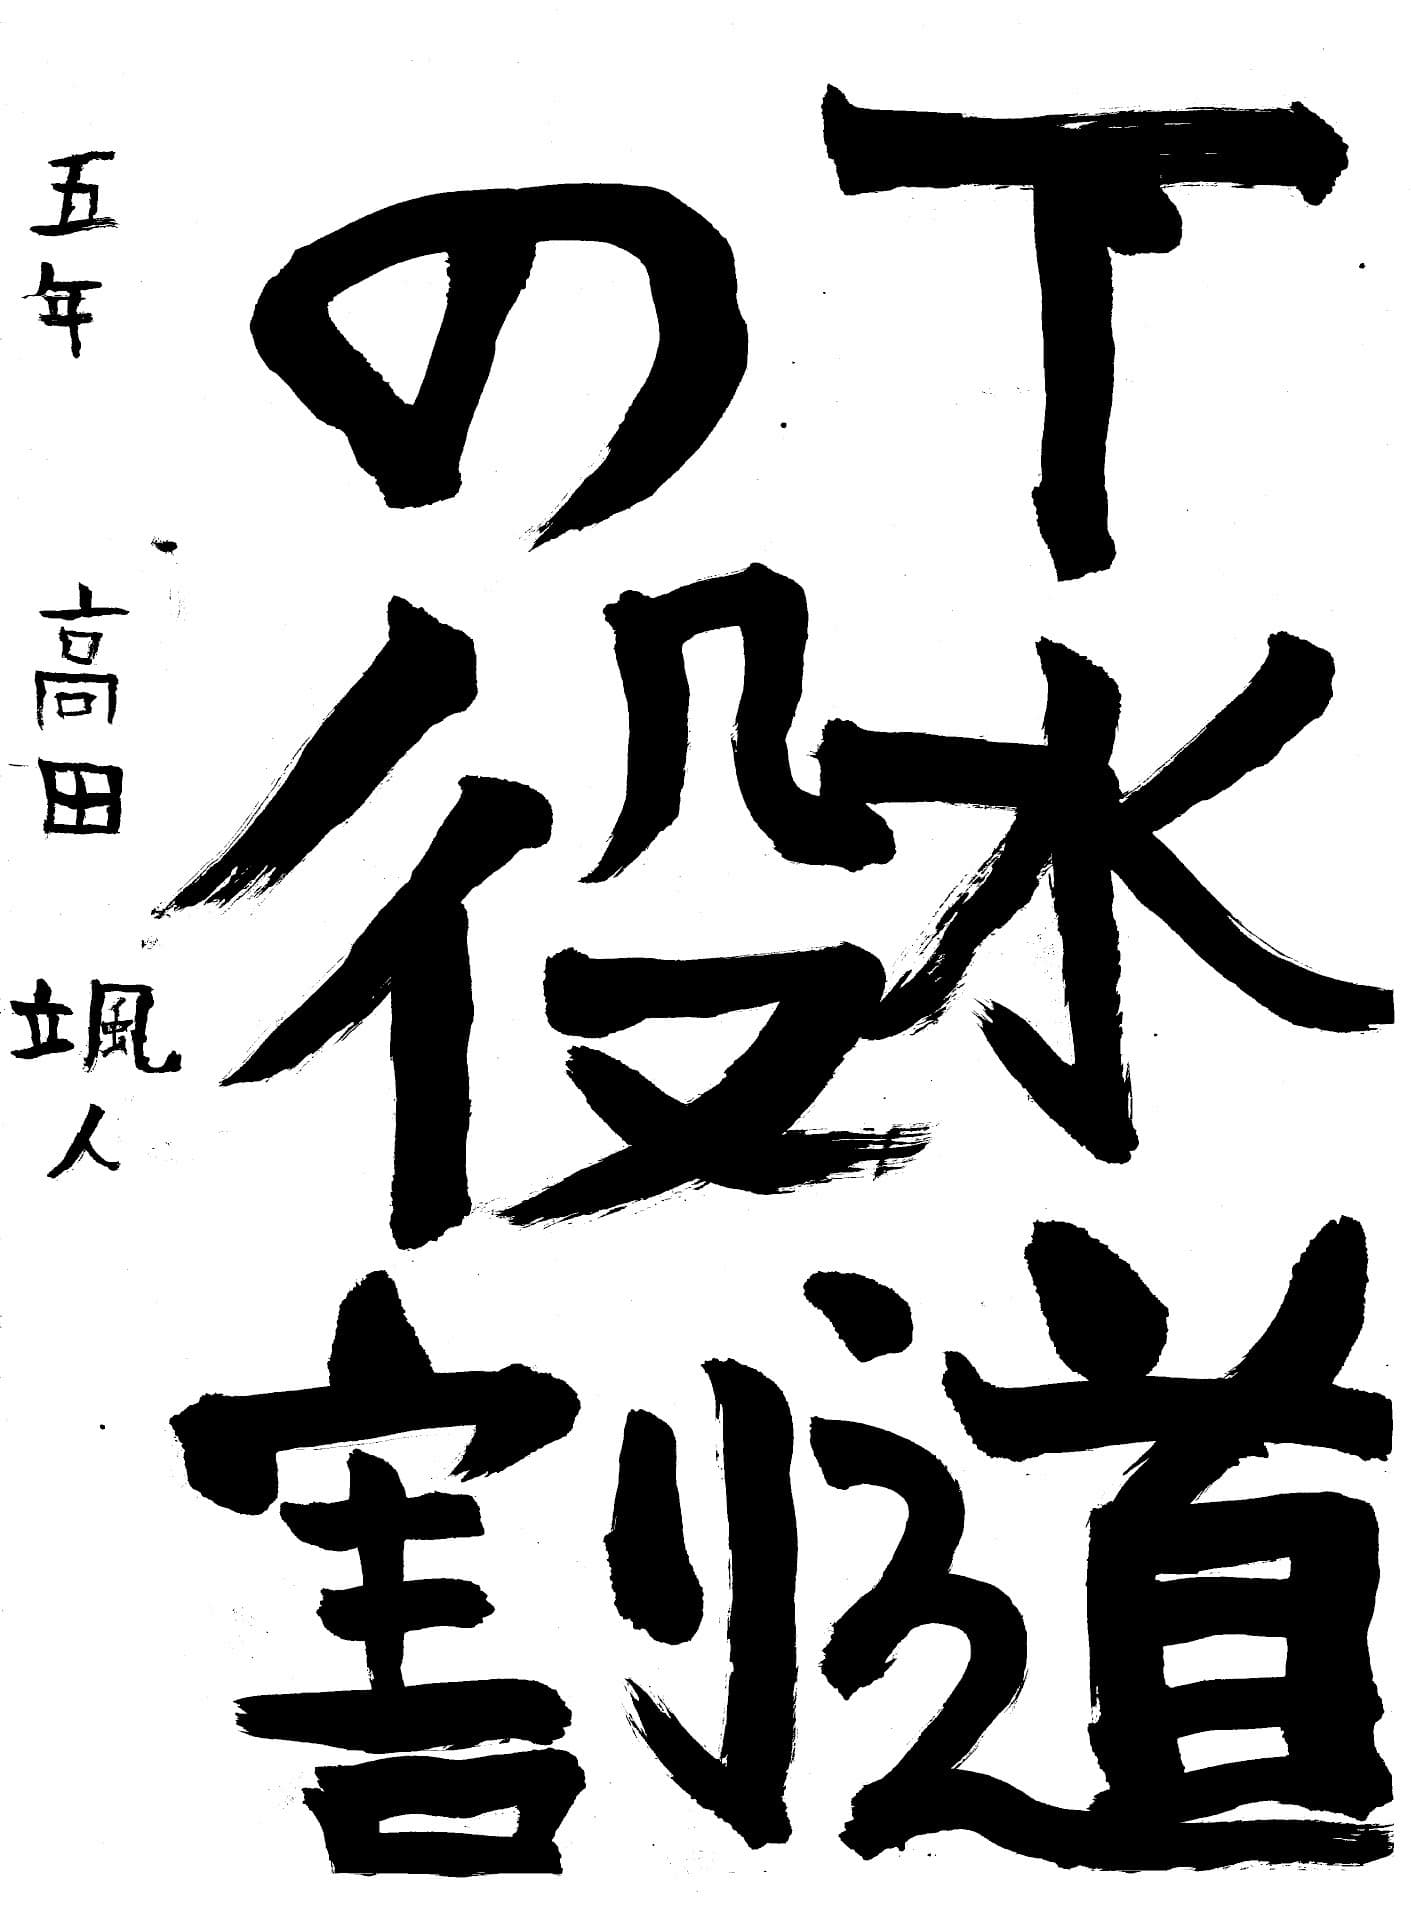 下水道
の役割
五年 高田颯人